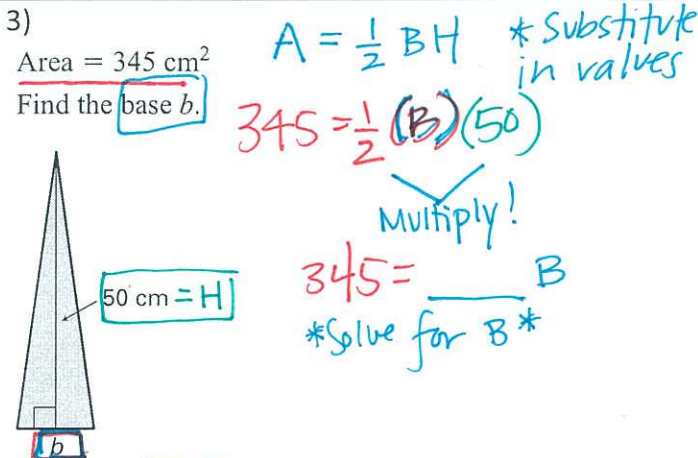 3)
Area = 345 cm²
Find the base b.
A = 1/2 BH
* Substitute
in values
345 = 1/2 (B)(50)
Multiply!
345 = ____ B
*Solve for B*
50 cm = H
b